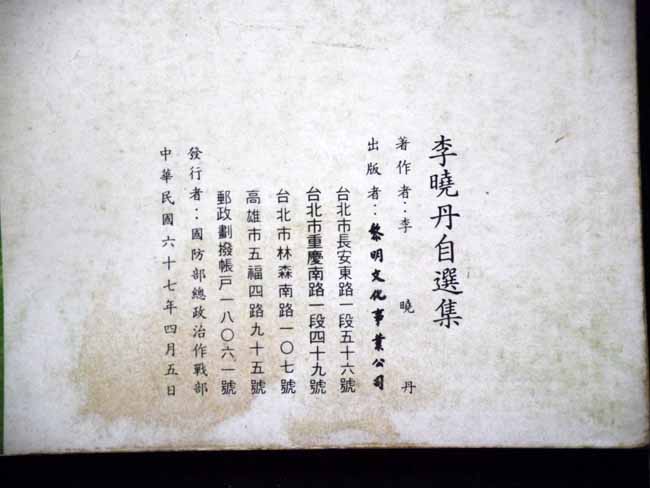 李曉丹自選集
著作者：李曉丹
出版者：黎明文化事業公司
台北市長安東路一段五十六號
台北市重慶南路一段四十九號
台北市林森南路一〇七號
高雄市五福四路九十五號
郵政劃撥帳戶一八〇六一號
發行者：國防部總政治作戰部
中華民國六十七年四月五日